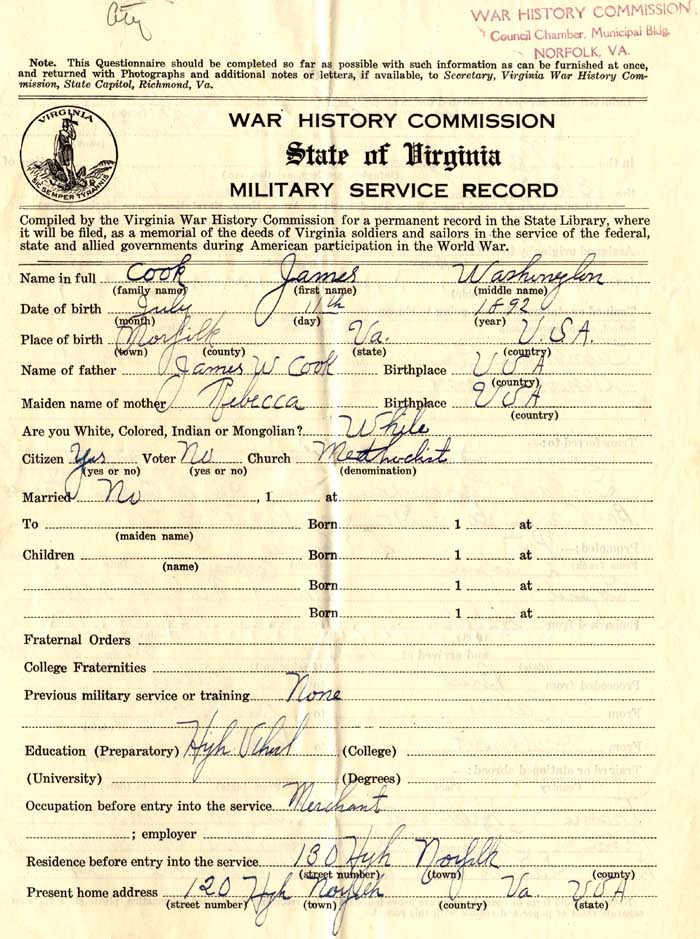 City
WAR HISTORY COMMISSION
Council Chamber, Municipal Bldg.
NORFOLK, VA.
Note. This Questionnaire should be completed so far as possible with such information as can be furnished at once,
and returned with Photographs and additional notes or letters, if available, to Secretary, Virginia War History Com-
mission, State Capitol, Richmond, Va.
VIRGINIA
SIC SEMPER TYRANNIS
WAR HISTORY COMMISSION
State of Virginia
MILITARY SERVICE RECORD
Compiled by the Virginia War History Commission for a permanent record in the State Library, where
it will be filed, as a memorial of the deeds of Virginia soldiers and sailors in the service of the federal,
state and allied governments during American participation in the World War.
Name in full Cook James Washington
(family name) (first name) (middle name)
Date of birth July 11th 1892
(month) (day) (year)
Place of birth Norfolk Va. U.S.A.
(town) (county) (state) (country)
Name of father James W Cook Birthplace USA
(country)
Maiden name of mother Rebecca Birthplace USA
(country)
Are you White, Colored, Indian or Mongolian? White
Citizen Yes Voter No Church Methodist
(yes or no) (yes or no) (denomination)
Married No , 1 at
To Born 1 at
(maiden name)
Children Born 1 at
(name)
Born 1 at
Born 1 at
Fraternal Orders
College Fraternities
Previous military service or training None
Education (Preparatory) High School (College)
(University) (Degrees)
Occupation before entry into the service Merchant
; employer
Residence before entry into the service 130 High Norfolk
(street number) (town) (county)
Present home address 120 High Norfolk Va. USA
(street number) (town) (country) (state)